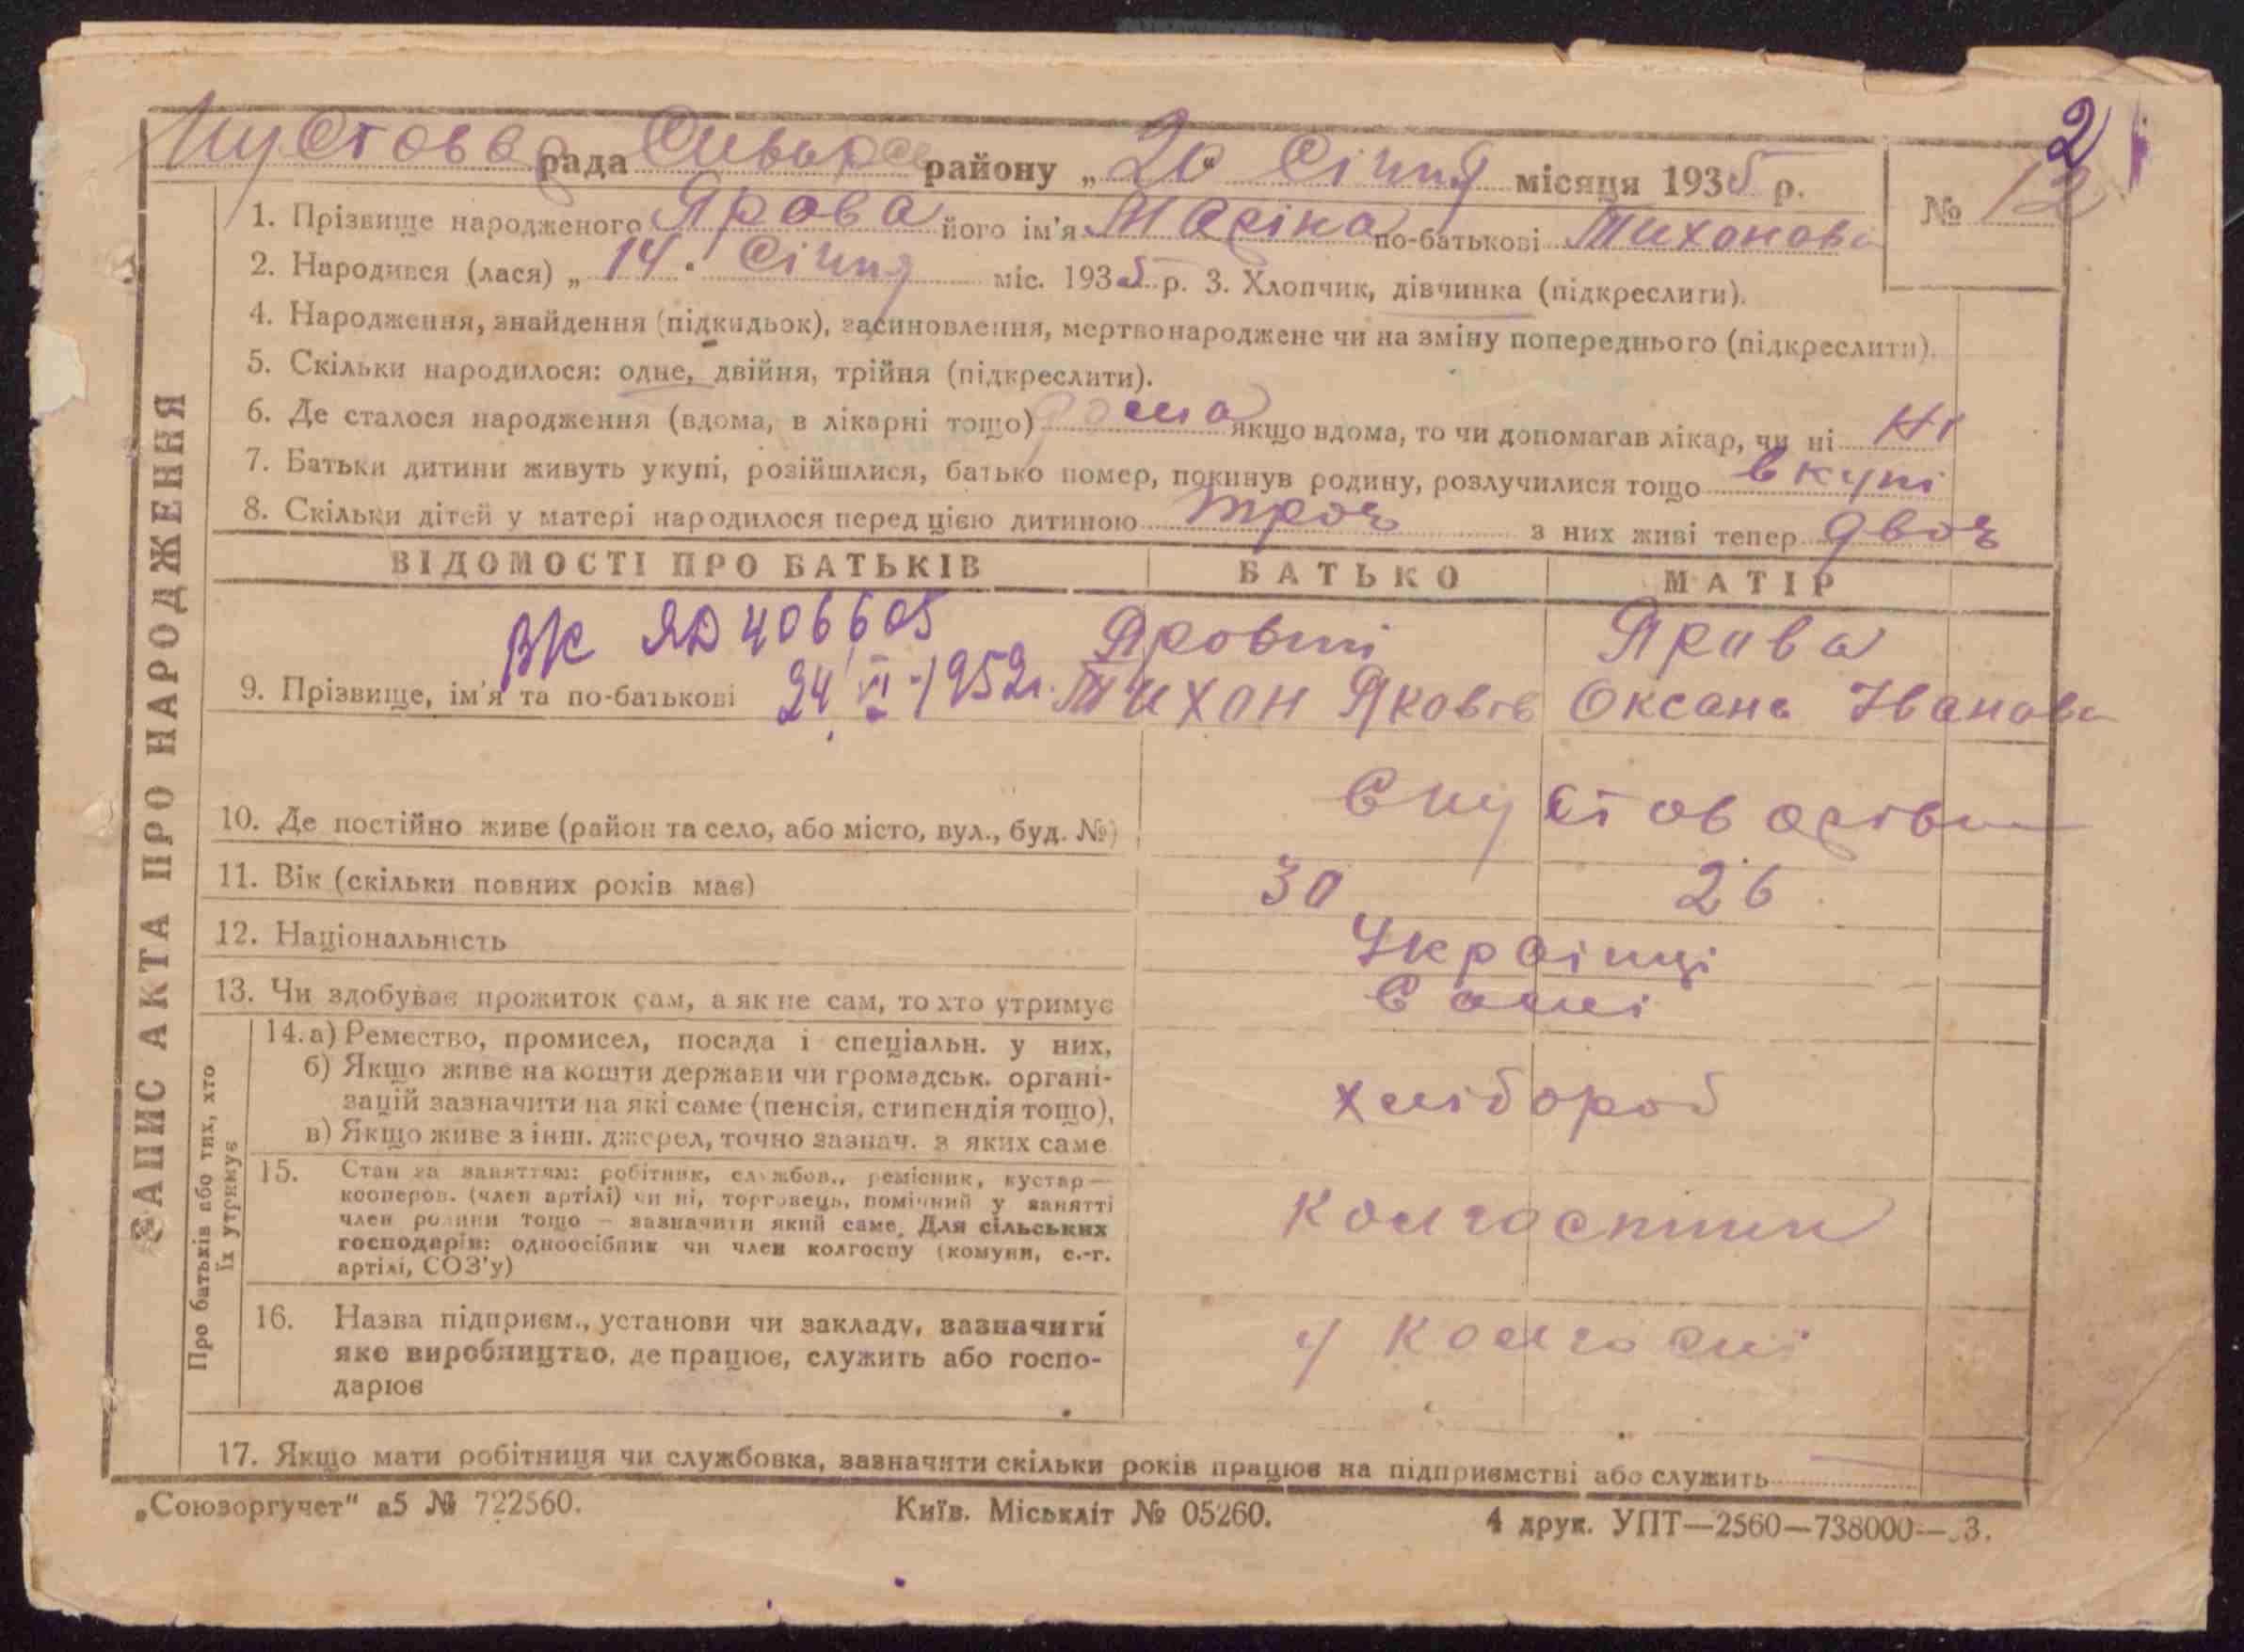 2
рада району „20" Січня місяця 1935 р. № 12
1. Прізвище народженого Ярова його ім'я Маріка по-батькові Тихонова
2. Народився (лася) „14" Січня міс. 1935 р. 3. Хлопчик, дівчинка (підкреслити).
4. Народження, знайдення (підкидьок), засиновлення, мертвонароджене чи на зміну попереднього (підкреслити).
5. Скільки народилося: одне, двійня, трійня (підкреслити).
6. Де сталося народження (вдома, в лікарні тощо) дома якщо вдома, то чи допомагав лікар, чи ні Ні
7. Батьки дитини живуть укупі, розійшлися, батько помер, покинув родину, розлучилися тощо вкупі
8. Скільки дітей у матері народилося перед цією дитиною троє з них живі тепер двоє
ЗАПИС АКТА ПРО НАРОДЖЕННЯ
ВІДОМОСТІ ПРО БАТЬКІВ БАТЬКО МАТІР
ВК ЯД 406605 Яровий Ярова
9. Прізвище, ім'я та по-батькові 24 VI-1952 г. Тихон Яковів Оксана Іванова
10. Де постійно живе (район та село, або місто, вул., буд. №)
11. Вік (скільки повних років має) 30 26
12. Національність Українці
13. Чи здобуває прожиток сам, а як не сам, то хто утримує Самі
Про батьків або тих, хто
їх утримує
14. а) Ремество, промисел, посада і спеціальн. у них,
б) Якщо живе на кошти держави чи громадськ. органі-
зацій зазначити на які саме (пенсія, стипендія тощо),
в) Якщо живе з інш. джерел, точно зазнач. з яких саме
хлібороб
15. Стан за заняттям: робітник, службов., ремісник, кустар—
кооперов. (член артілі) чи ні, торговець, помічний у занятті
член родини тощо — зазначити який саме. Для сільських
господарів: одноосібник чи член колгоспу (комуни, с.-г.
артілі, СОЗ'у)
колгоспники
16. Назва підприєм., установи чи закладу, зазначити
яке виробництво, де працює, служить або госпо-
дарює
у колгоспі
17. Якщо мати робітниця чи службовка, зазначити скільки років працює на підприємстві або служить
„Союзоргучет" а5 № 722560. Київ. Міськліт № 05260. 4 друк. УПТ—2560—738000—3.